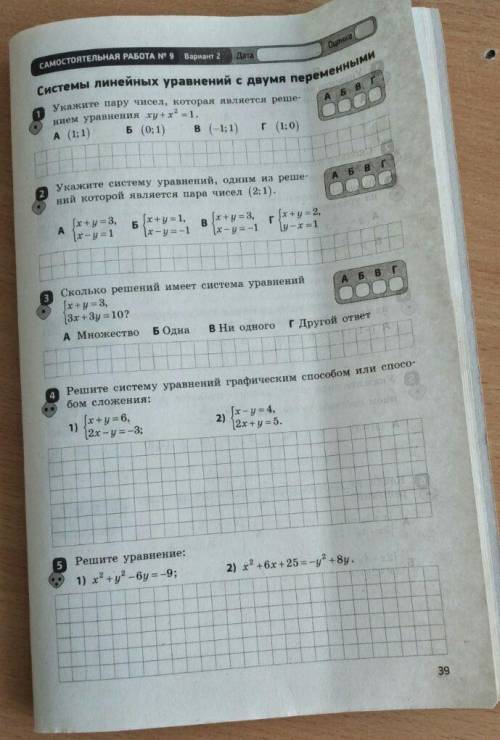 САМОСТОЯТЕЛЬНАЯ РАБОТА № 9 Вариант 2 Дата Оценка
Системы линейных уравнений с двумя переменными
1 Укажите пару чисел, которая является реше-
нием уравнения xy + x² = 1.
А Б В Г
А (1; 1) Б (0; 1) В (−1; 1) Г (1; 0)
2 Укажите систему уравнений, одним из реше-
ний которой является пара чисел (2; 1).
А Б В Г
А {x + y = 3, Б {x + y = 1, В {x + y = 3, Г {x + y = 2,
x − y = 1 x − y = −1 x − y = −1 y − x = 1
3 Сколько решений имеет система уравнений
{x + y = 3,
3x + 3y = 10?
А Б В Г
А Множество Б Одна В Ни одного Г Другой ответ
4 Решите систему уравнений графическим способом или спосо-
бом сложения:
1) {x + y = 6, 2) {x − y = 4,
2x − y = −3; 2x + y = 5.
5 Решите уравнение:
1) x² + y² − 6y = −9; 2) x² + 6x + 25 = −y² + 8y.
39